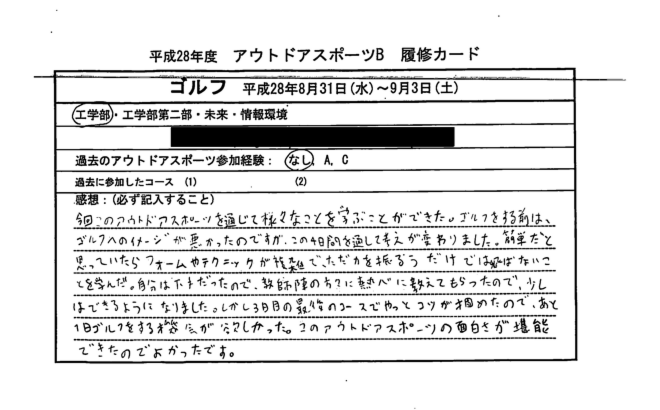 平成28年度 アウトドアスポーツB 履修カード
ゴルフ 平成28年8月31日(水)～9月3日(土)
工学部・工学部第二部・未来・情報環境
過去のアウトドアスポーツ参加経験： なし、A、C
過去に参加したコース (1) (2)
感想：(必ず記入すること)
今回このアウトドアスポーツを通じて様々なことを学ぶことができた。ゴルフをする前は、
ゴルフへのイメージが悪かったのですが、この4日間を通して考えが変わりました。簡単だと
思っていたらフォームやテクニックが複雑でただ力を振るうだけでは飛ばないこ
とを学んだ。自分は下手だったので、教師陣の方々に熱心に教えてもらったので、少し
はできるようになりました。しかし3日目の最後のコースでやっとコツが掴めたので、あと
1日ゴルフをする機会が欲しかった。このアウトドアスポーツの面白さが堪能
できたのでよかったです。